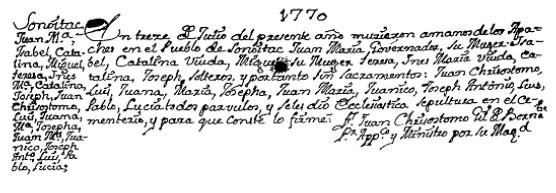 1770
Sonoitac
Juan Mª,
Isabel, Cata-
lina, Miguel,
teresa, Ines
Mª, Catalina
Joseph, Juan
Chrisostomo,
Luis, Juana,
Mª, Josepha,
Juan Mª, Jua-
nico, Joseph
Antº, Luis, Pa-
blo, Lucia;
En trece de Junio del presente año murieron a manos de los Apa-
ches en el Pueblo de Sonoitac Juan Maria, Governador, Su Muger Isa-
bel, Catalina Viuda, Miguel su Muger teresa, Ines Maria Viuda, Ca-
talina, Joseph, Solteros, y por tanto sin Sacramentos: Juan Chrisostomo,
Luis, Juana, Maria, Josepha, Juan Maria, Juanico, Joseph Antonio, Luis,
Pablo, Lucia todos parvulos, y se les dio Ecclesiastica Sepultura en el Ce-
menterio, y para que Conste lo firmé Fr. Juan Chrisostomo Gil de Berna
Pr. Appco y Ministro por su Magd